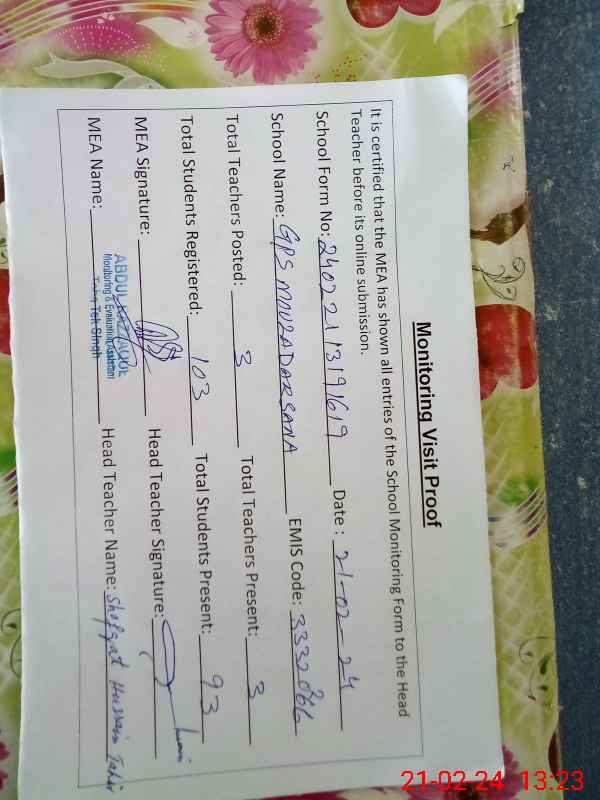 Monitoring Visit Proof
It is certified that the MEA has shown all entries of the School Monitoring Form to the Head
Teacher before its online submission.
School Form No: 24022113191619 Date : 21-02-24
School Name: GPS MOUZA DARSANA EMIS Code:
Total Teachers Posted: 3 Total Teachers Present: 3
Total Students Registered: 103 Total Students Present: 93
MEA Signature: Head Teacher Signature:
MEA Name: Head Teacher Name: Hussain Tahir
Monitoring & Evaluation Assistant
Toba Tek Singh
21-02-24 13:23